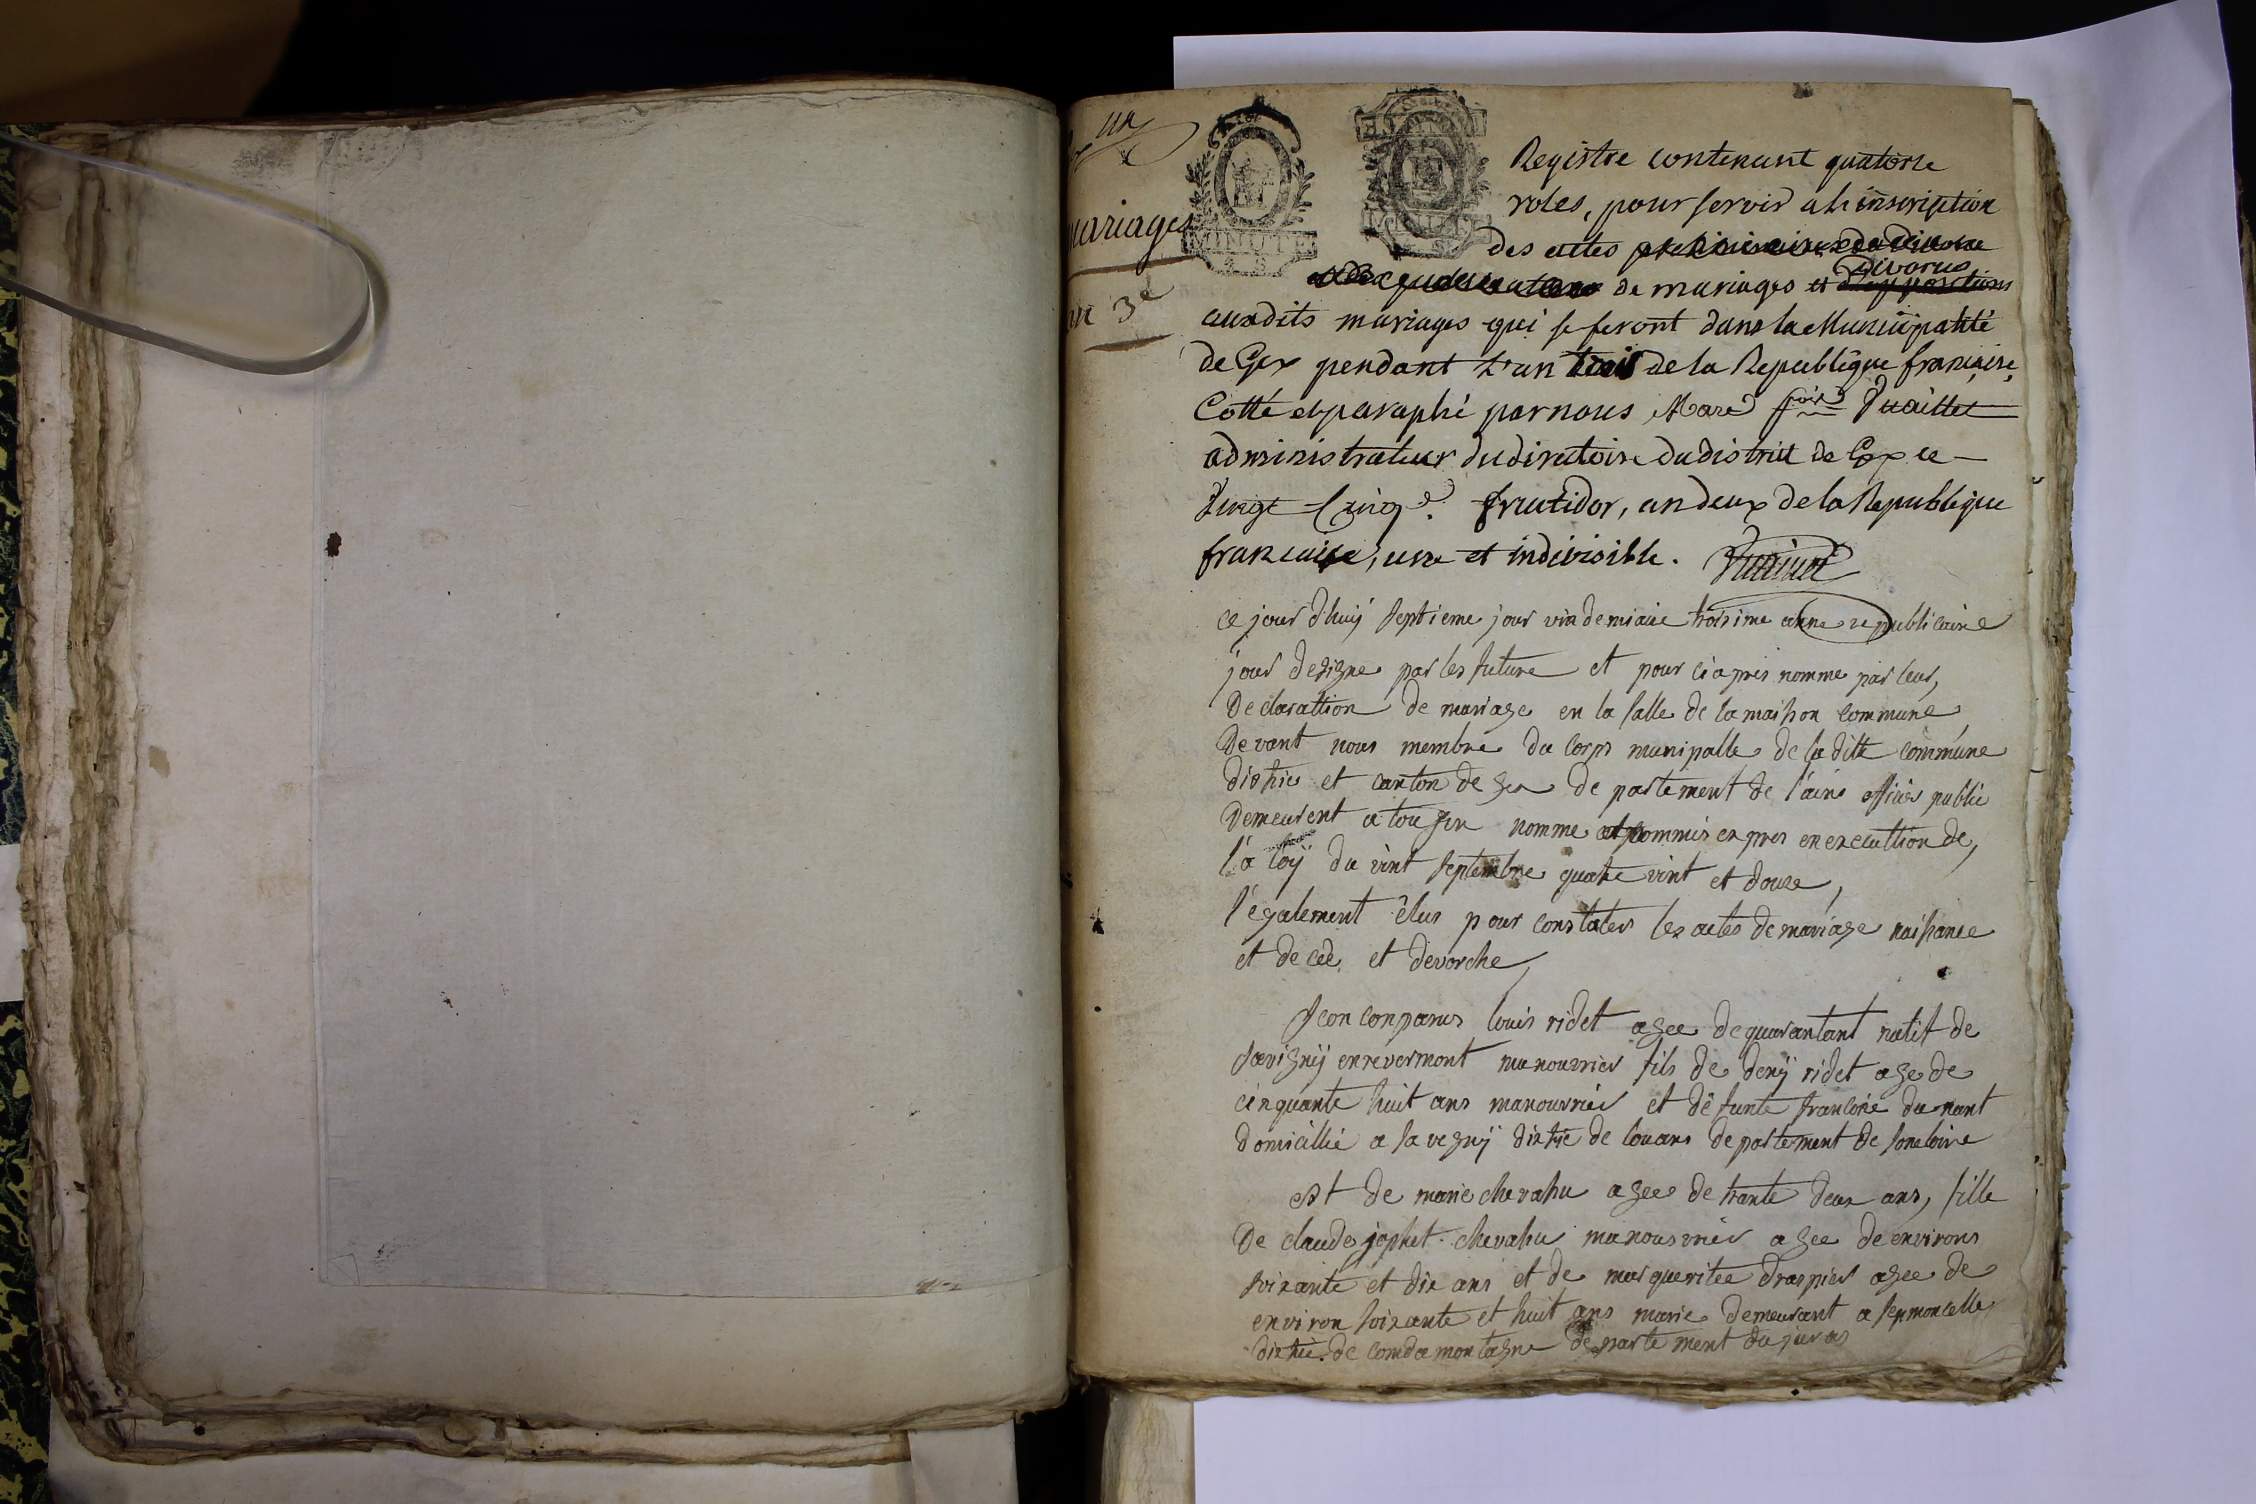 un
mariages
an 3e
MINUTE
Registre contenant quatorze
roles, pour servir a l'inscription
des actes
divorces
de mariages et d'oppositions
auxdits mariages qui se feront dans la Municipalité
de Gex pendant l'an trois de la Republique française,
Cotté et paraphé par nous Marc fois Vuaillet
administrateur du directoire du district de Gex ce
Vingt Cinq e. fructidor, an deux de la Republique
francaise, une et indivisible. Vuaillet
ce jour d'huÿ septieme jour vindemiaire troisime anne republicaine
jour designe par les future et pour ci apres nomme par leur,
Declarattion de mariage en la salle de la maison commune
Devant nous membre du corps munipalle de la ditte commune
distric et canton de gex de partement de l'ains officier public
Demeurent a tougin nomme et commis expres en executtion de,
l'a loÿ du vint septembre quatre vint et douze,
l'également élus pour constater les actes de mariage naisance
et de cée et devorche,
Scon conparus louis ridet agee de quarantant natif de
savignÿ enrevermont manouvrier fils de denÿ ridet age de
cinquante huit ans manouvrier et défunte francoise du nant
domicillié a savegnÿ distric de louans departement de sone loire
est de marie chevahu agee de trante deux ans, fille
De claude jophet chevahu manouvrier agee de environs
soixante et dix ans et de marqueritee drapier agee de
environ soixante et huit ans marie demeurant a sepmoncelle
distric de condamontagne de parte ment du juras